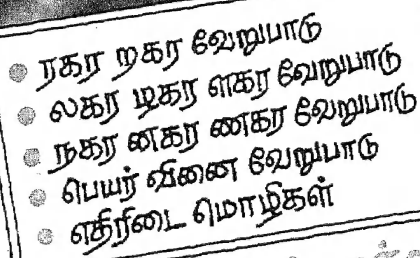 ரகர றகர வேறுபாடு
லகர ழகர ளகர வேறுபாடு
நகர னகர ணகர வேறுபாடு
பெயர் வினை வேறுபாடு
எதிரிடை மொழிகள்